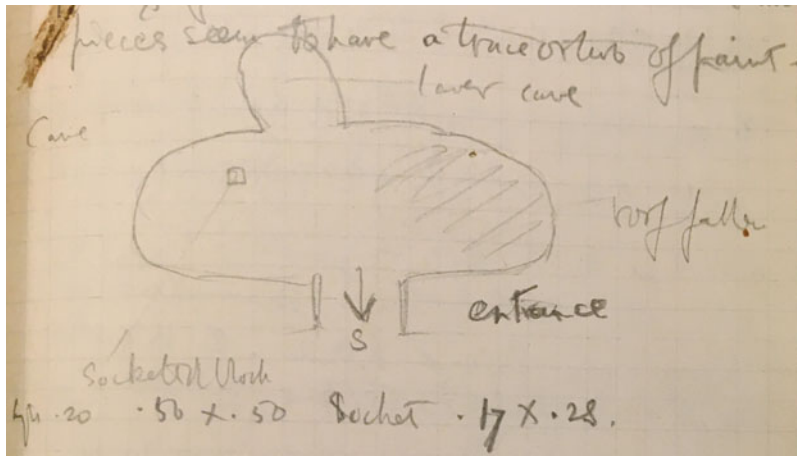 pieces seem to have a trace or two of paint.
lower cave
Cave
roof fallen
entrance
S
socketed block
.20 .50 X .50 Socket .17 X .28.